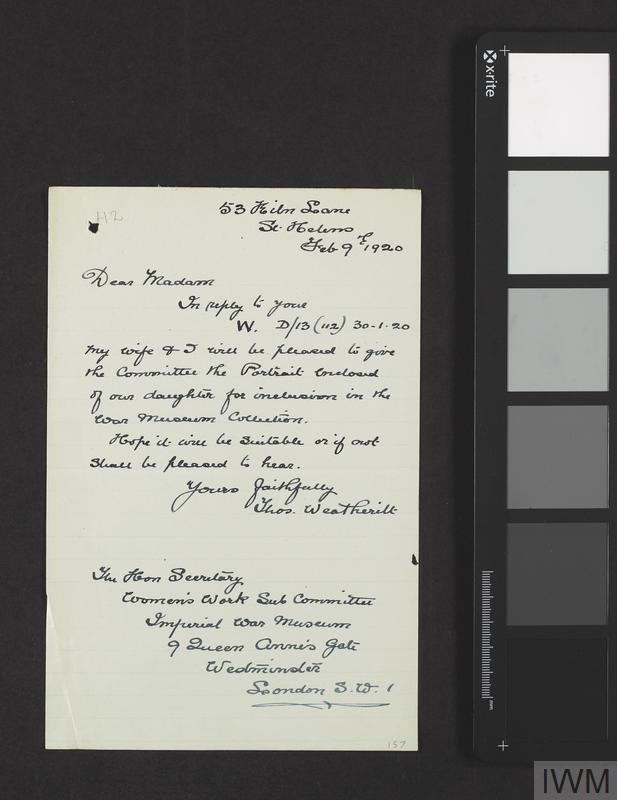 H2
53 Kiln Lane
St. Helens
Feb 9th 1920
Dear Madam
In reply to your
W. D/13 (112) 30-1-20
my wife & I will be pleased to give
the Committee the Portrait Enclosed
of our daughter for inclusion in the
War Museum Collection.
Hope it will be suitable or if not
Shall be pleased to hear.
Yours faithfully
Thos. Weatherilt
The Hon Secretary
Women's Work Sub Committee
Imperial War Museum
9 Queen Anne's Gate
Wedminster
London S.W. 1
157
x-rite
mm
IWM